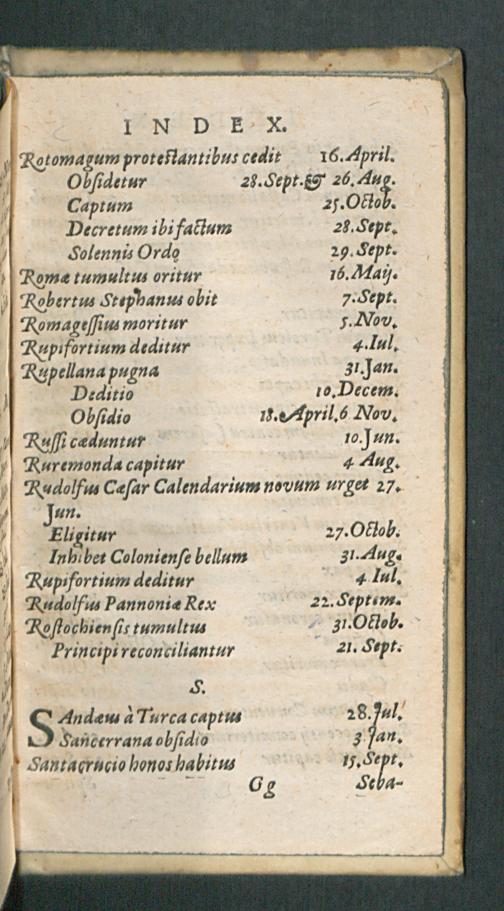 INDEX.
Rotomagum protestantibus cedit 16. April.
Obsidetur 28. Sept. & 26. Aug.
Captum 25. Octob.
Decretum ibi factum 28. Sept.
Solennis Ordo 29. Sept.
Romæ tumultus oritur 16. Maij.
Robertus Stephanus obit 7. Sept.
Romagessius moritur 5. Nov.
Rupifortium deditur 4. Iul.
Rupellana pugna 31. Jan.
Deditio 10. Decem.
Obsidio 18. April. 6 Nov.
Russi cæduntur 10. Jun.
Ruremonda capitur 4 Aug.
Rudolfus Cæsar Calendarium novum urget 27.
Jun.
Eligitur 27. Octob.
Inhibet Coloniense bellum 31. Aug.
Rupifortium deditur 4 Iul.
Rudolfus Pannoniæ Rex 22. Septem.
Rostochiensis tumultus 31. Octob.
Principi reconciliantur 21. Sept.
S.
SAndæus à Turca captus 28. Jul.
Sancerrana obsidio 3 Jan.
Santacrucio honos habitus 15. Sept.
Gg Seba-